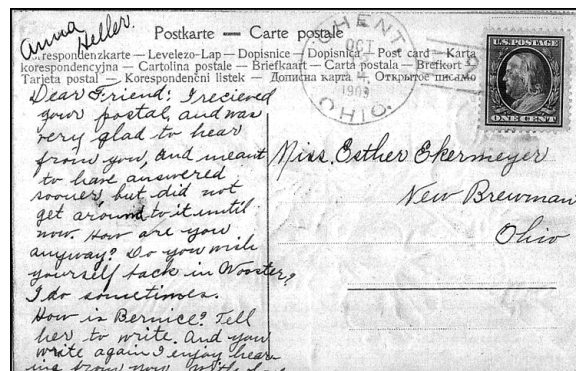 Anna
Heller.
Postkarte — Carte postale
Korrespondenzkarte — Levelezo-Lap — Dopisnice — Dopisnica — Post card — Karta
korespondencyjna — Cartolina postale — Briefkaart — Carta postala — Brefkort
Tarjeta postal — Korespondenčni listek — Дописна карта. Открытое письмо
OCT
4
OHIO.
U.S. POSTAGE
ONE CENT
Dear Friend: I recieved
your postal, and was
very glad to hear
from you, and meant
to have answered
sooner, but did not
get around to it until
now. How are you
anyway? Do you wish
yourself back in Wooster?
I do sometimes.
How is Bernice? Tell
her to write. And you
write again I enjoy hear-
ing from
Miss. Esther Ekermeyer
New Brewman
Ohio